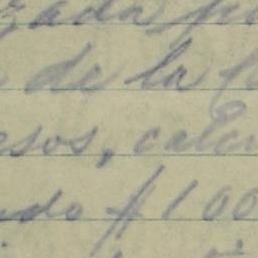 zada p
de la f
esos, calcu
ndo $100